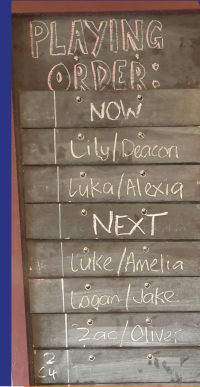 PLAYING
ORDER:
NOW
Lily/Deacon
Luka/Alexia
NEXT
Luke/Amelia
Logan/Jake
Zac/Oliver